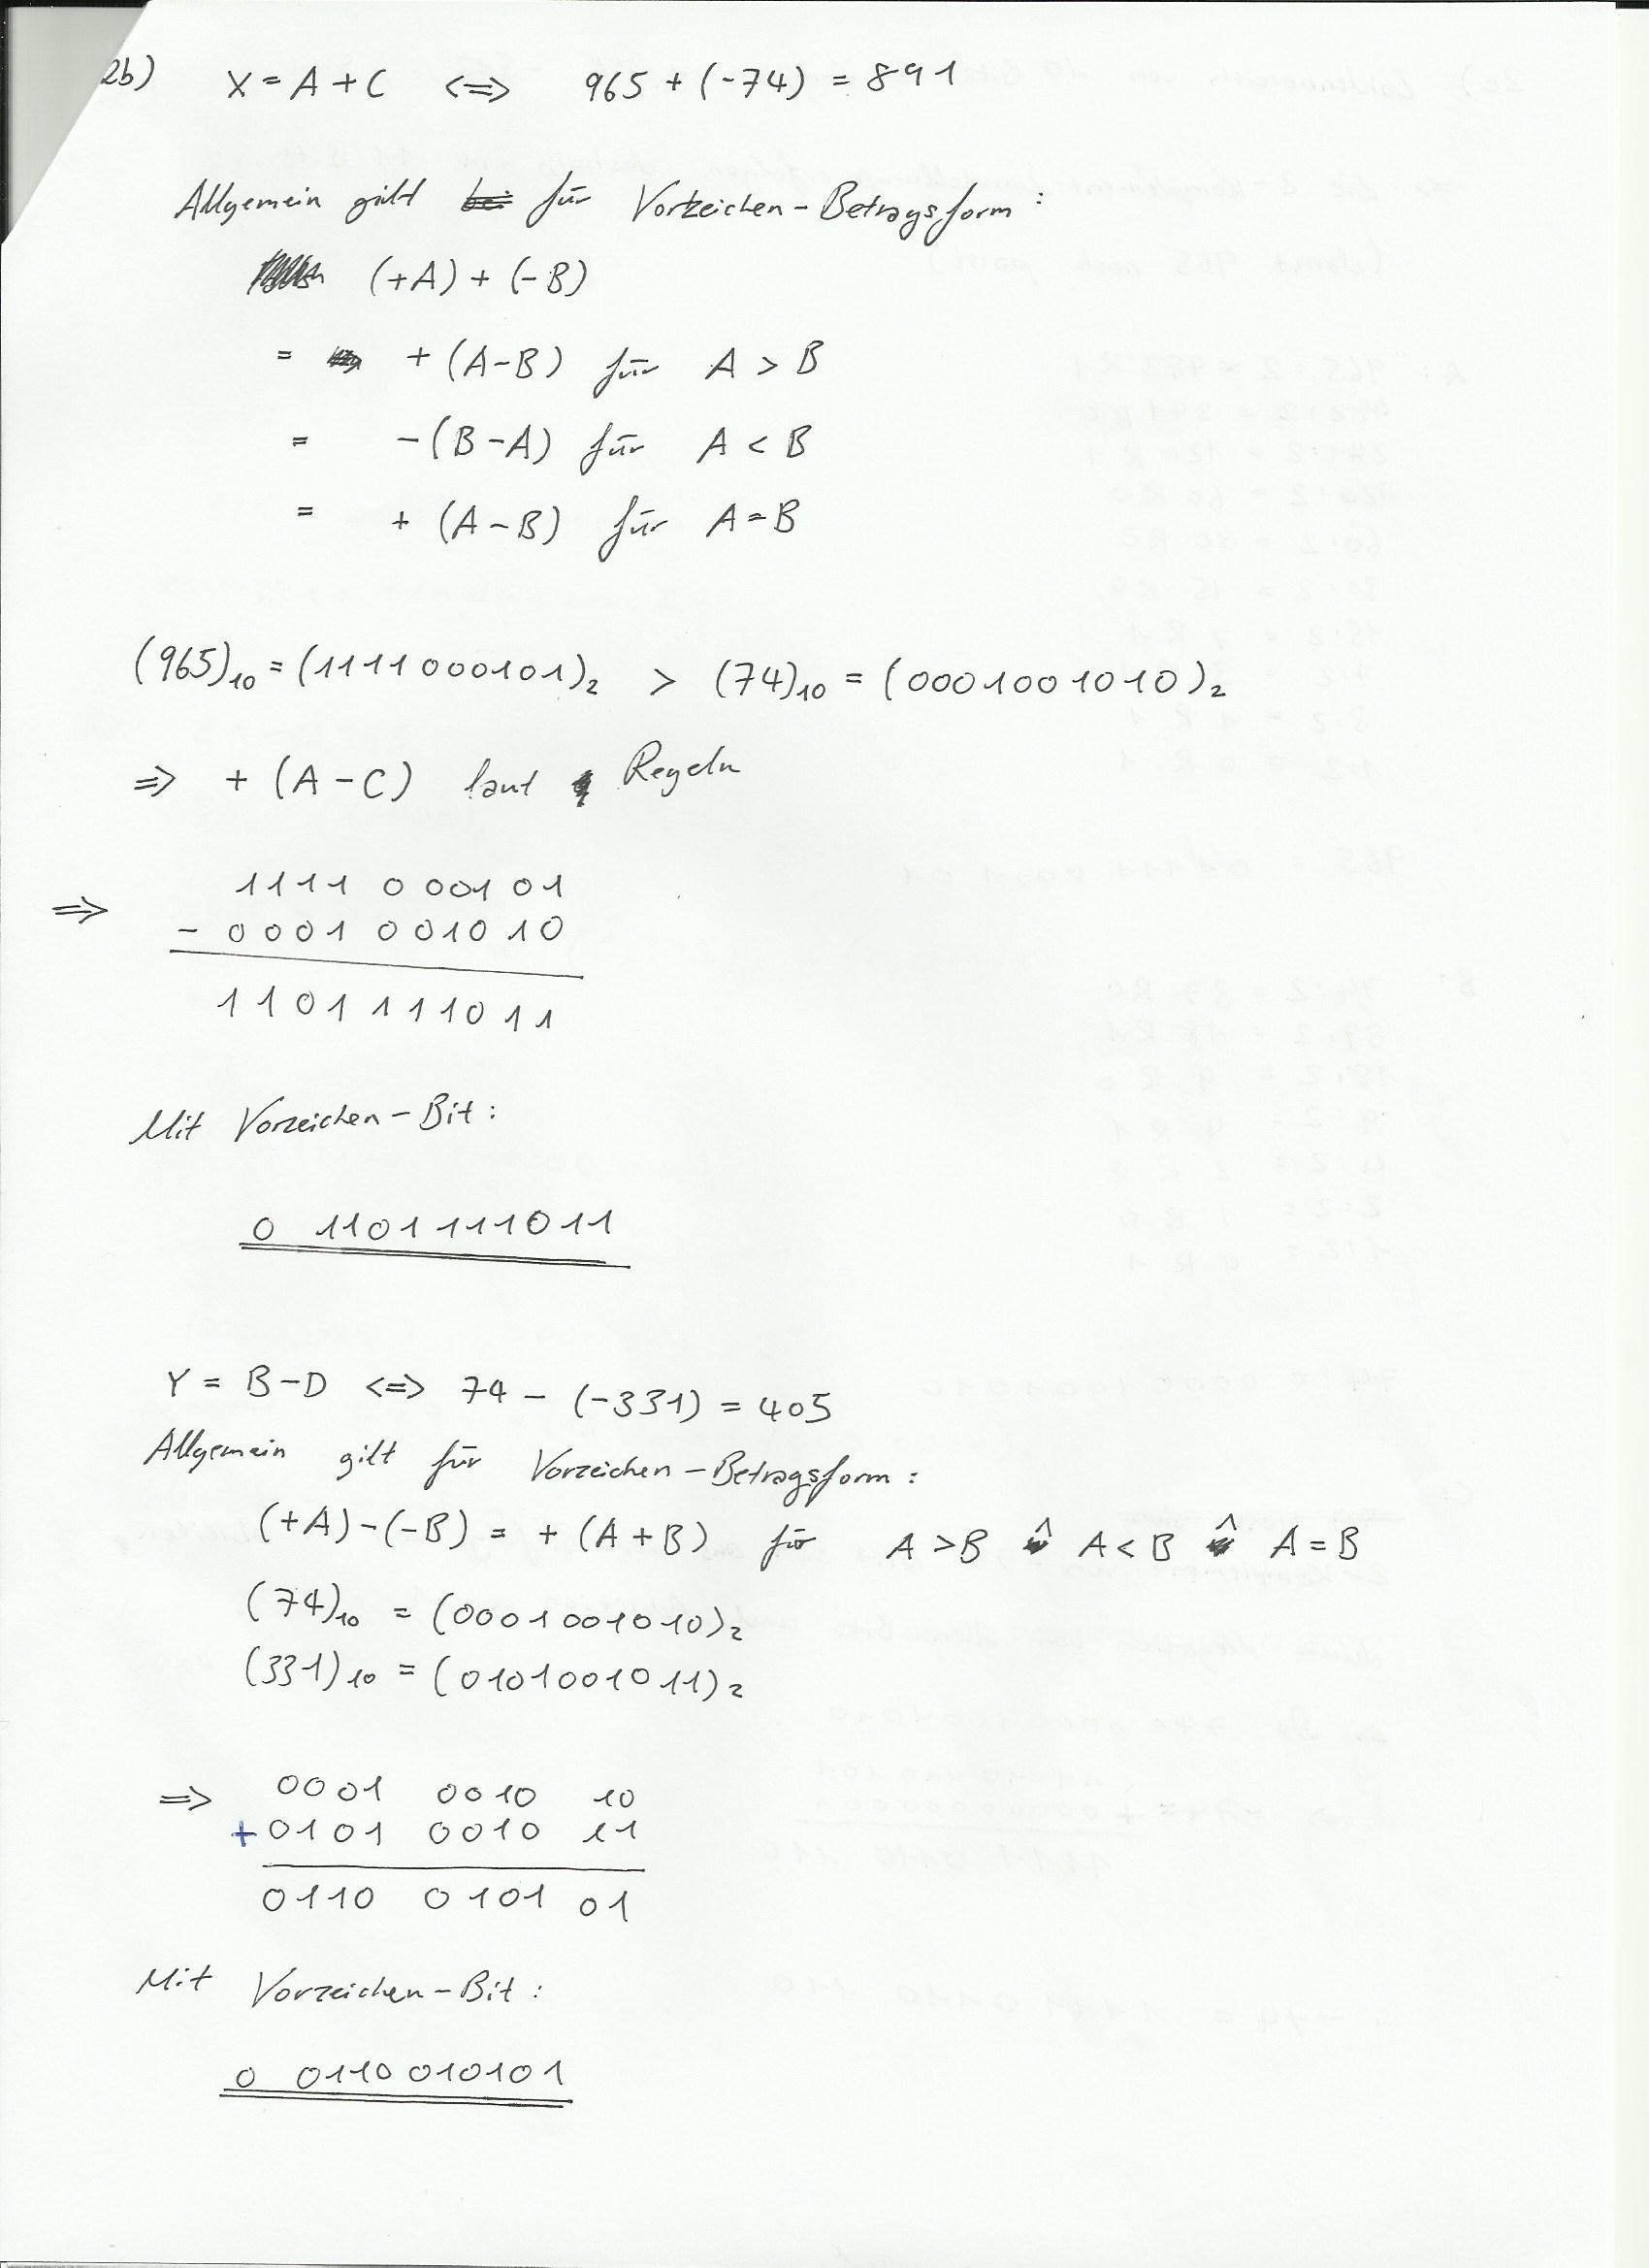 2b) X = A + C <=> 965 + (-74) = 891
Allgemein gilt für Vorzeichen-Betragsform:
(+A) + (-B)
= + (A-B) für A > B
= -(B-A) für A < B
= + (A-B) für A = B
(965)₁₀ = (1111000101)₂ > (74)₁₀ = (0001001010)₂
=> + (A - C) laut Regeln
=> 1111 000101
- 0001 001010
1101111011
Mit Vorzeichen-Bit:
0 1101111011
Y = B-D <=> 74 - (-331) = 405
Allgemein gilt für Vorzeichen-Betragsform:
(+A)-(-B) = + (A+B) für A > B ^ A < B ^ A = B
(74)₁₀ = (0001001010)₂
(331)₁₀ = (0101001011)₂
=> 0001 0010 10
+ 0101 0010 11
0110 0101 01
Mit Vorzeichen-Bit:
0 0110010101